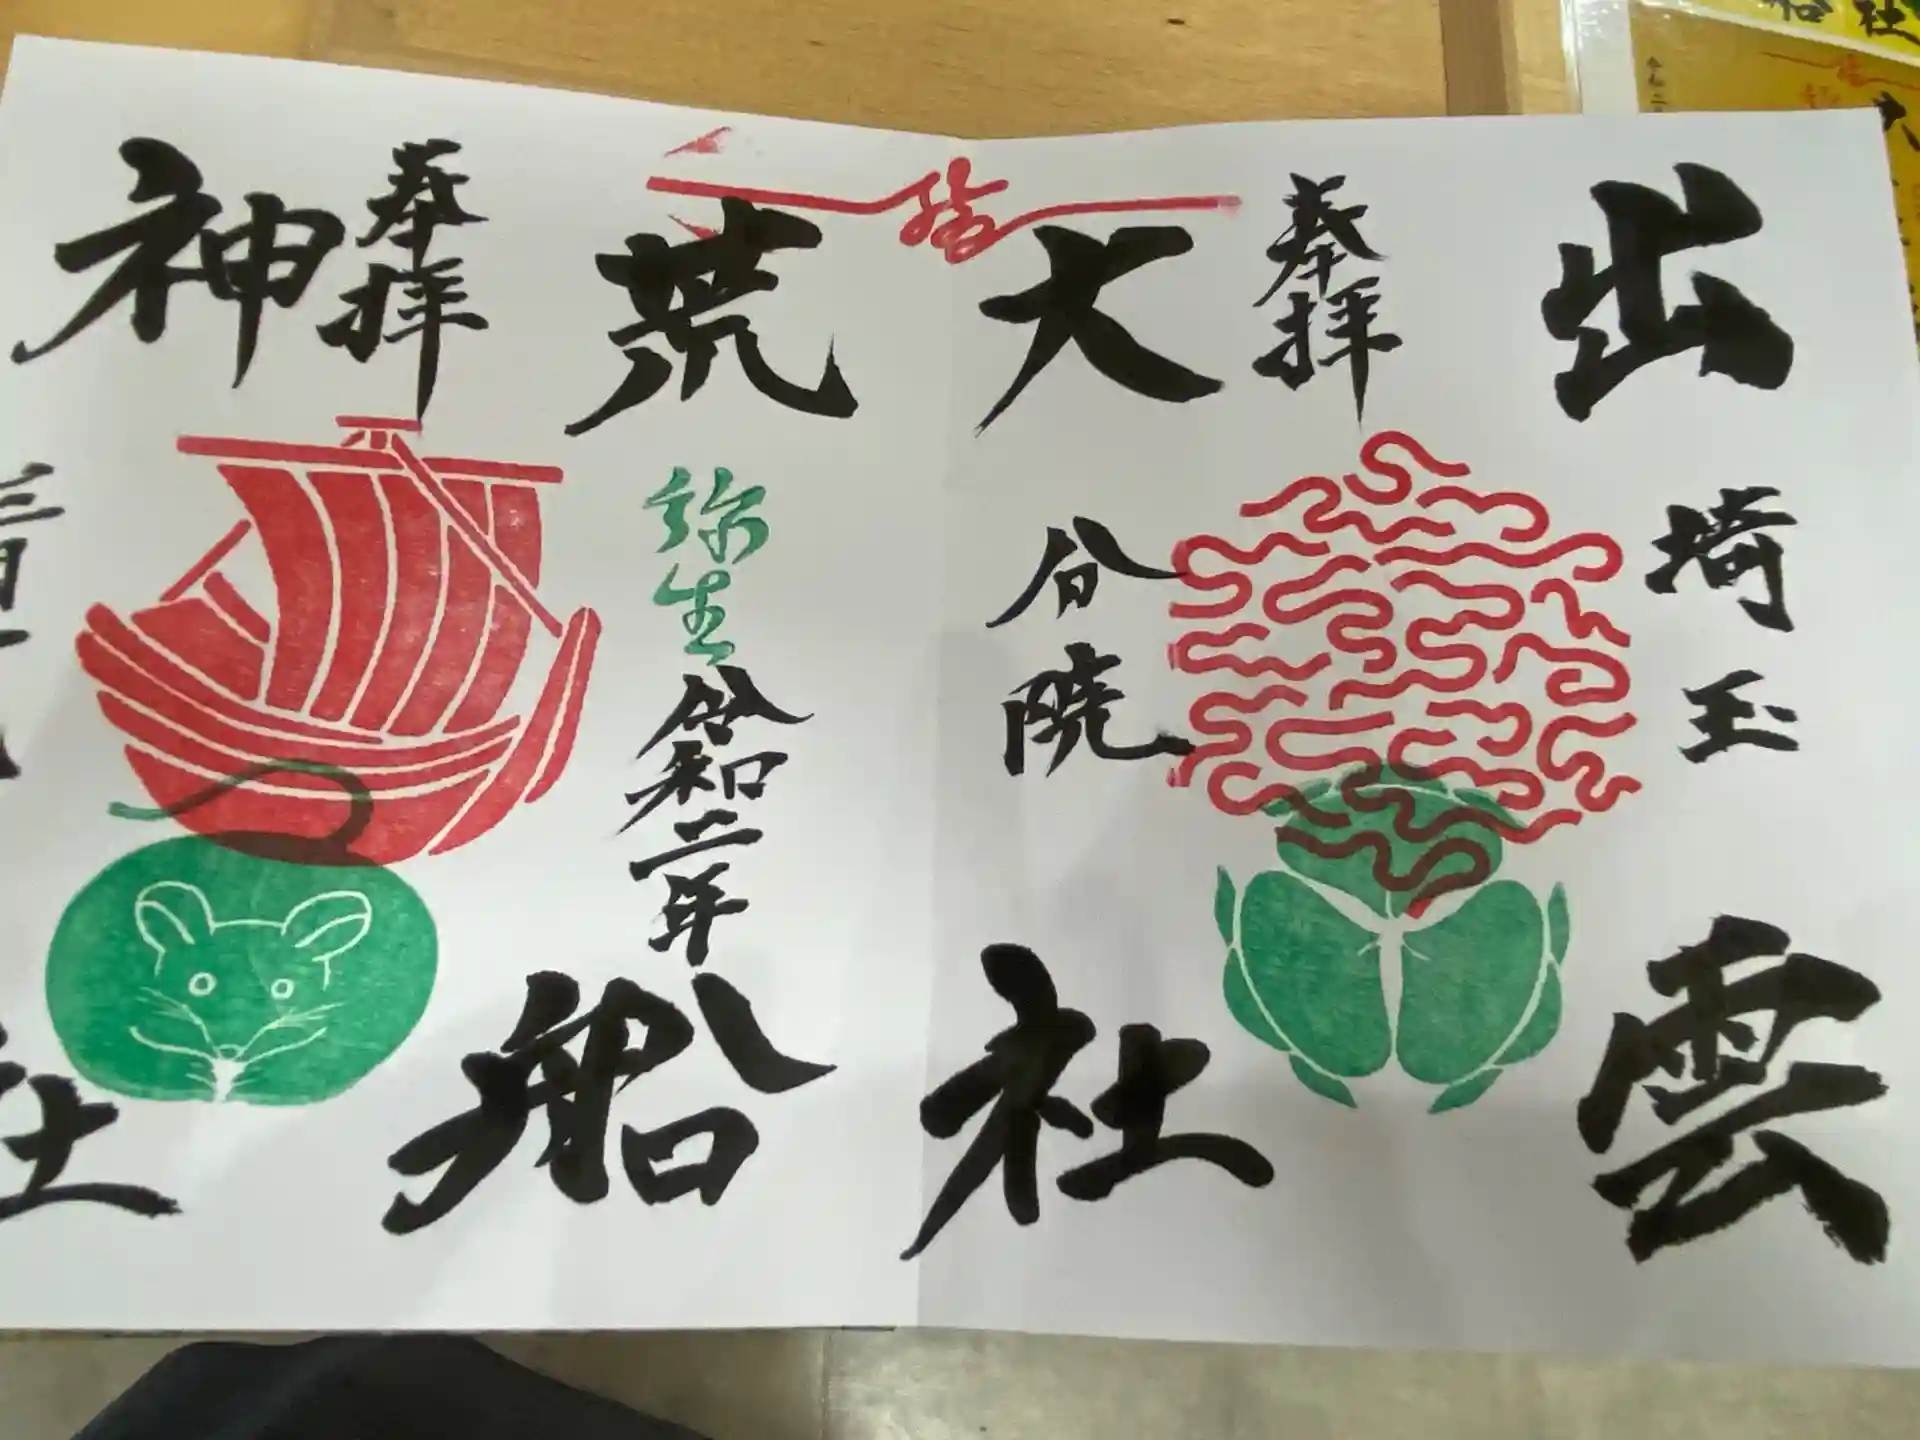 出雲
埼玉
奉拝
大社
分院
結
荒船
弥生
令和二年
奉拝
神社
三月